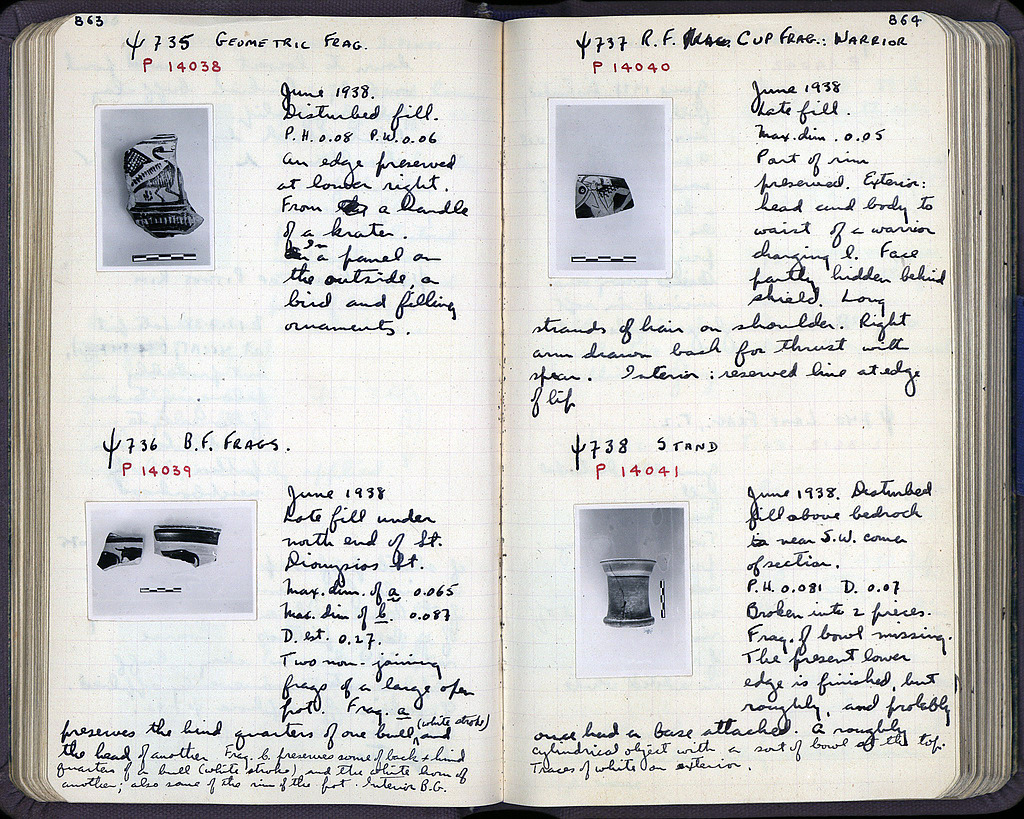 863
Ψ 735 GEOMETRIC FRAG.
P 14038
June 1938.
Disturbed fill.
P.H. 0.08 P.W. 0.06
An edge preserved
at lower right.
From a handle
of a krater.
In a panel on
the outside, a
bird and filling
ornaments.
Ψ 736 B.F. FRAGS.
P 14039
June 1938
Late fill under
north end of St.
Dionysios St.
Max. dim. of a 0.065
Max. dim of b. 0.087
D. est. 0.27.
Two non-joining
frags of a large open
pot. Frag. a
preserves the hind quarters of one bull (white stroke) and
the head of another. Frag. b. preserves some of back & hind
quarters of a bull (white stroke) and the white horn of
another; also some of the rim of the pot. Interior B.G.
864
Ψ 737 R.F. CUP FRAG.: WARRIOR
P 14040
June 1938
Late fill.
Max. dim. 0.05
Part of rim
preserved. Exterior:
head and body to
waist of a warrior
charging l. Face
partly hidden behind
shield. Long
strands of hair on shoulder. Right
arm drawn back for thrust with
spear. Interior: reserved line at edge
of lip
Ψ 738 STAND
P 14041
June 1938. Disturbed
fill above bedrock
near S.W. corner
of section.
P.H. 0.081 D. 0.07
Broken into 2 pieces.
Frag. of bowl missing.
The present lower
edge is finished, but
roughly, and probably
once had a base attached. A roughly
cylindrical object with a sort of bowl at the top.
Traces of white on exterior.